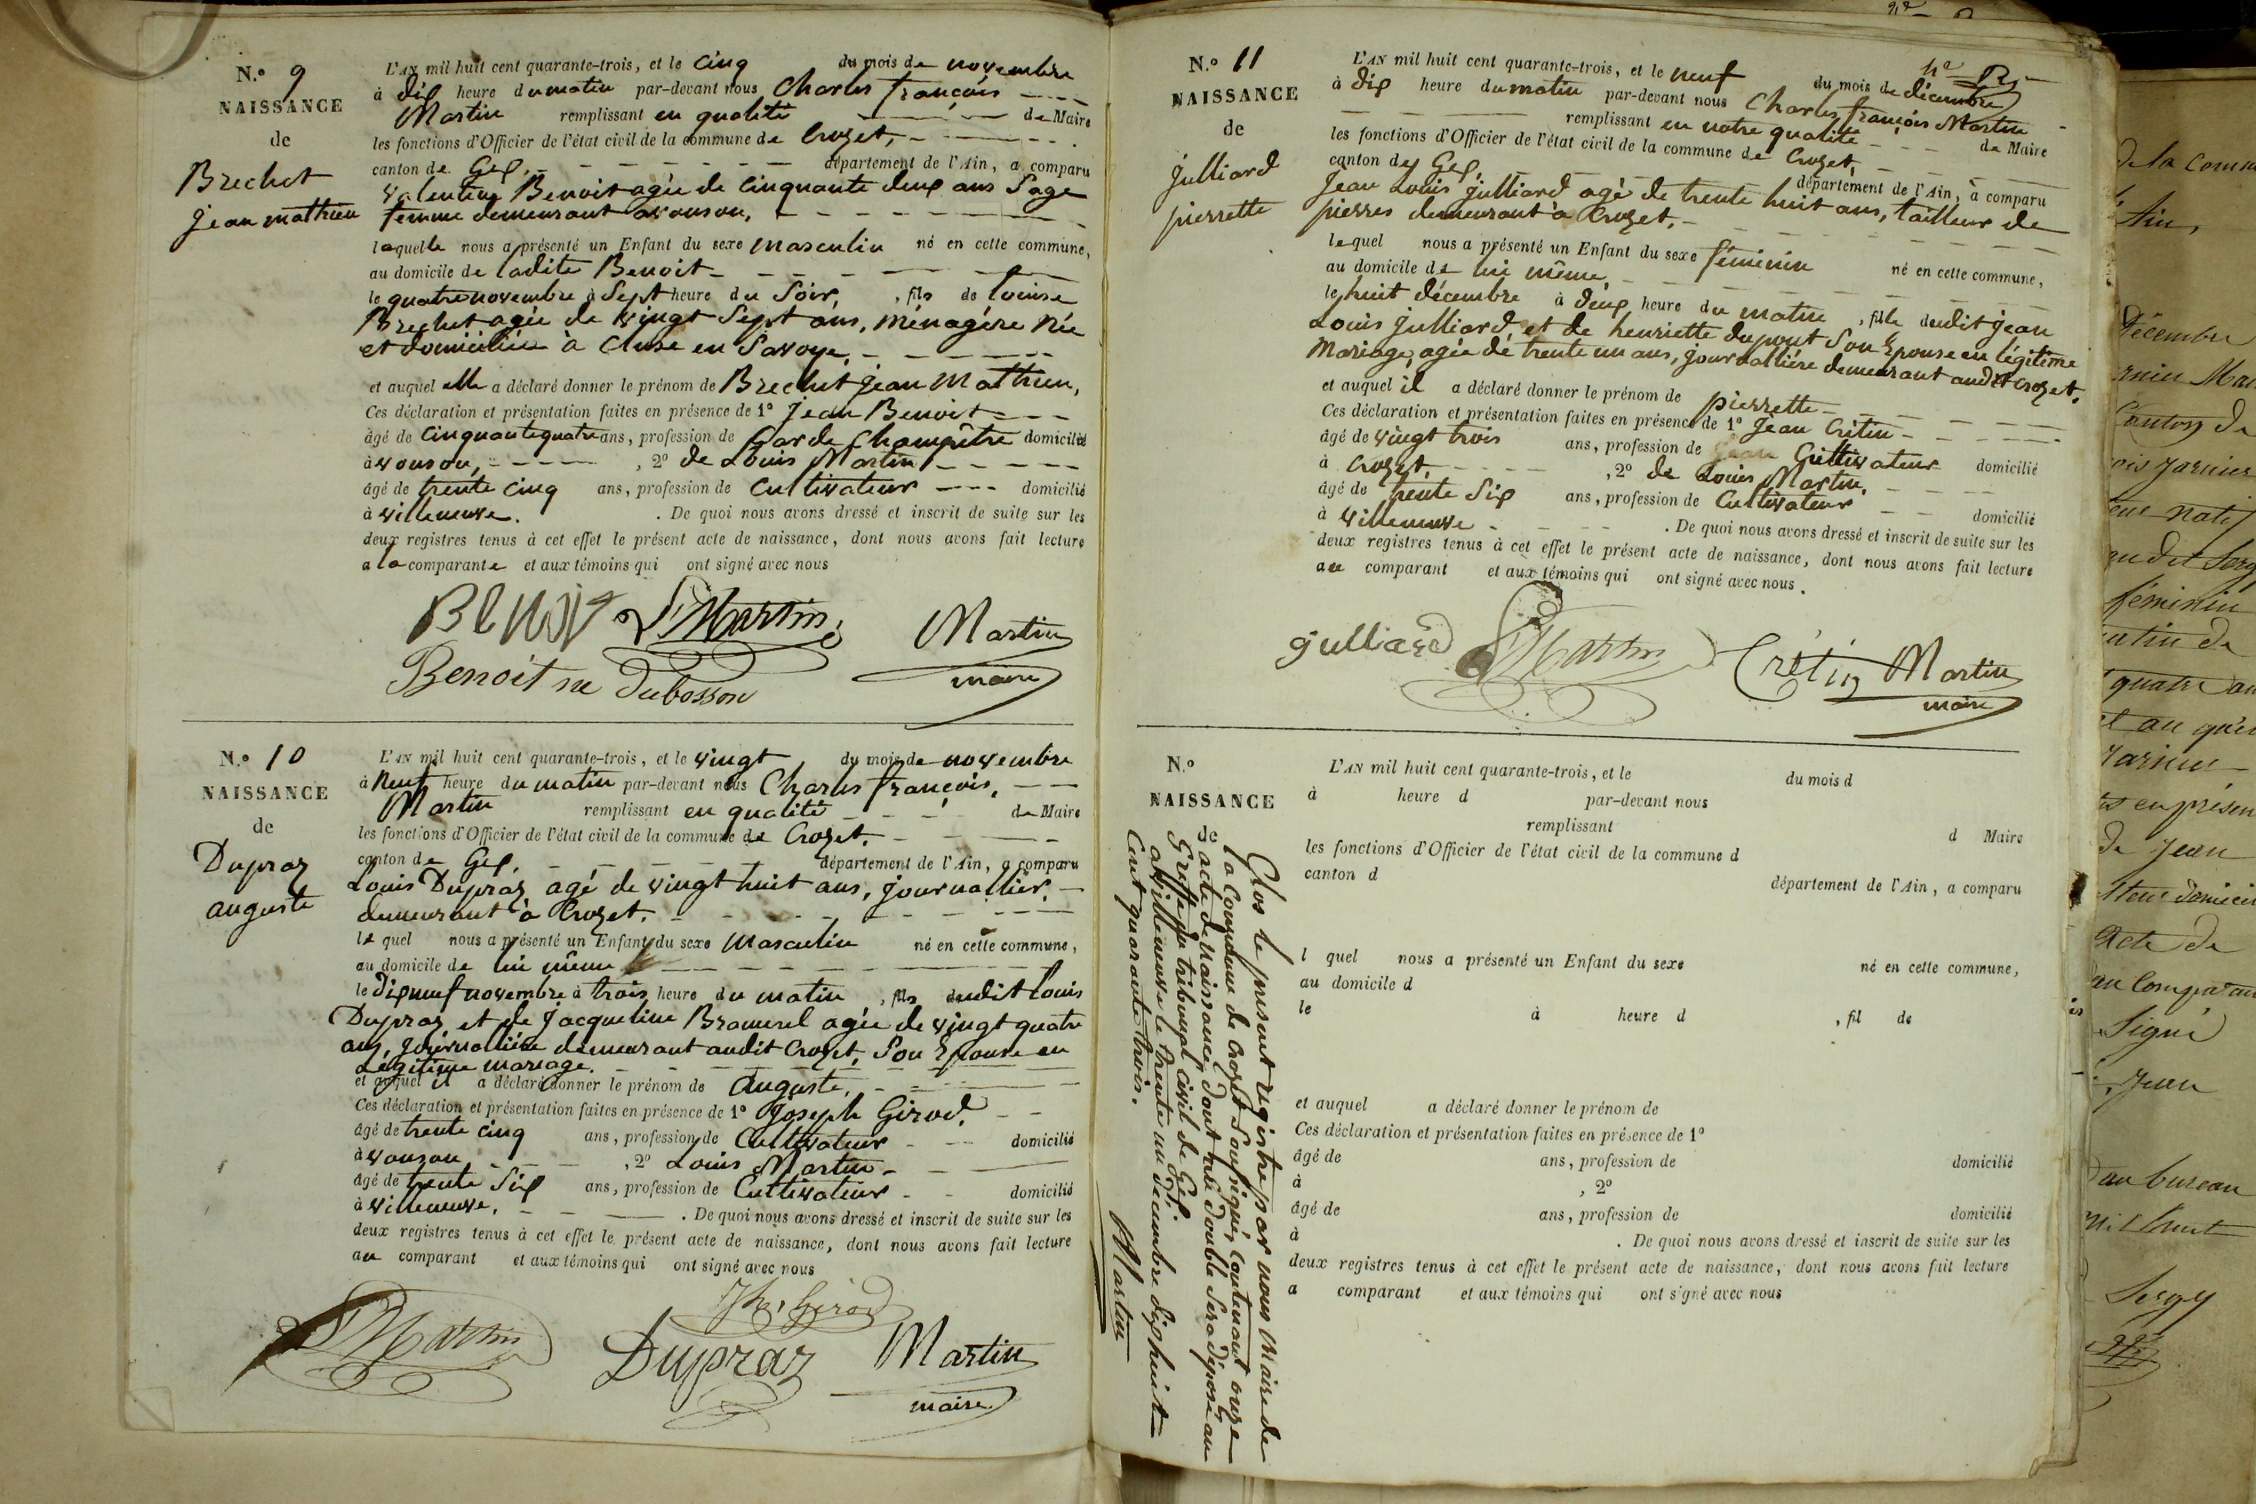 N.º 9
NAISSANCE
de
Brechet
jean mathieu
L'AN mil huit cent quarante-trois, et le cinq du mois de novembre
à dix heure du matin par-devant nous Charles françois
Martin remplissant en qualité de Maire
les fonctions d'Officier de l'état civil de la commune de Crozet,
canton de Gex, département de l'Ain, a comparu
valentine Benoit agée de cinquante deux ans Sage
femme demeurant avouson,
laquelle nous a présenté un Enfant du sexe masculin né en cette commune,
au domicile de ladite Benoit
le quatre novembre à Sept heure du Soir, , fils de louise
Brechet agée de vingt Sept ans, ménagére née
et domiciliée à Cluse en Savoye,
et auquel elle a déclaré donner le prénom de Brechet jean Mathieu,
Ces déclaration et présentation faites en présence de 1º jean Benoit
âgé de cinquante quatre ans, profession de Garde Champêtre domicilié
à vouson, , 2º de Louis Martin
âgé de trente cinq ans, profession de Cultivateur domicilié
à villeneuve. . De quoi nous avons dressé et inscrit de suite sur les
deux registres tenus à cet effet le présent acte de naissance, dont nous avons fait lecture
a la comparante et aux témoins qui ont signé avec nous
Benoit L Martin Martin
Benoit ne Dubosson maire
N.º 10
NAISSANCE
de
Dupraz
auguste
L'AN mil huit cent quarante-trois, et le vingt du mois de novembre
à neuf heure du matin par-devant nous Charles françois,
Martin remplissant en qualité de Maire
les fonctions d'Officier de l'état civil de la commune de Crozet.
canton de Gex, département de l'Ain, a comparu
Louis Dupraz agé de vingt huit ans, journallier,
demeurant à Crozet.
le quel nous a présenté un Enfant du sexe Masculin né en cette commune,
au domicile de lui même
le dix neuf novembre à trois heure du matin , fils dudit Louis
Dupraz et de Jacqueline agée de vingt quatre
ans, journalliére demeurant audit Crozet, Son Epouse en
Légitime mariage.
et auquel il a déclaré donner le prénom de auguste,
Ces déclaration et présentation faites en présence de 1º Joseph Girod,
âgé de trente cinq ans, profession de Cultivateur domicilié
à vouson , 2º Louis Martin
âgé de trente Six ans, profession de Cultivateur domicilié
à villeneuve, . De quoi nous avons dressé et inscrit de suite sur les
deux registres tenus à cet effet le présent acte de naissance, dont nous avons fait lecture
au comparant et aux témoins qui ont signé avec nous
L Martin Jh Girod
Dupraz Martin
maire
N.º 11
NAISSANCE
de
julliard
pierrette
L'AN mil huit cent quarante-trois, et le neuf du mois de décembre
à dix heure du matin par-devant nous Charles françois Martin
remplissant en notre qualité de Maire
les fonctions d'Officier de l'état civil de la commune de Crozet,
canton de Gex, département de l'Ain, a comparu
jean Louis julliard agé de trente huit ans, tailleur de
pierres demeurant à Crozet,
lequel nous a présenté un Enfant du sexe féminin né en cette commune,
au domicile de lui même,
le huit décembre à deux heure du matin , fille dudit jean
Louis julliard, et de henriette dupont Son Epouse en légitime
Mariage, agée de trente un ans, journalliére demeurant audit Crozet.
et auquel il a déclaré donner le prénom de pierrette
Ces déclaration et présentation faites en présence de 1º jean Crétin
âgé de vingt trois ans, profession de Cultivateur domicilié
à Crozet, , 2º de Louis Martin,
âgé de trente Six ans, profession de Cultivateur domicilié
à villeneuve . De quoi nous avons dressé et inscrit de suite sur les
deux registres tenus à cet effet le présent acte de naissance, dont nous avons fait lecture
au comparant et aux témoins qui ont signé avec nous.
julliard L Martin Crétin Martin
maire
N.º
NAISSANCE
de
L'AN mil huit cent quarante-trois, et le du mois d
à heure d par-devant nous
remplissant d Maire
les fonctions d'Officier de l'état civil de la commune d
canton d département de l'Ain, a comparu
l quel nous a présenté un Enfant du sexe né en cette commune,
au domicile d
le à heure d , fil de
et auquel a déclaré donner le prénom de
Ces déclaration et présentation faites en présence de 1º
âgé de ans, profession de domicilié
à , 2º
âgé de ans, profession de domicilié
à . De quoi nous avons dressé et inscrit de suite sur les
deux registres tenus à cet effet le présent acte de naissance, dont nous avons fait lecture
a comparant et aux témoins qui ont signé avec nous
Clos le present registre par nous Maire de
la Commune de Crozet Soussigné, Contenant onze
actes de Naissance, dont leur double Sera déposé au
Greffe du tribunal Civil de Gex.
a villeneuve le trente un decembre dix huit
Cent quarante trois.
Martin
de la comm
Ain,
Décembre
Canton de
natif
féminin
quatre an
en présen
de jean
Acte de
au Compar
Signé
jean
au bureau
Sergy